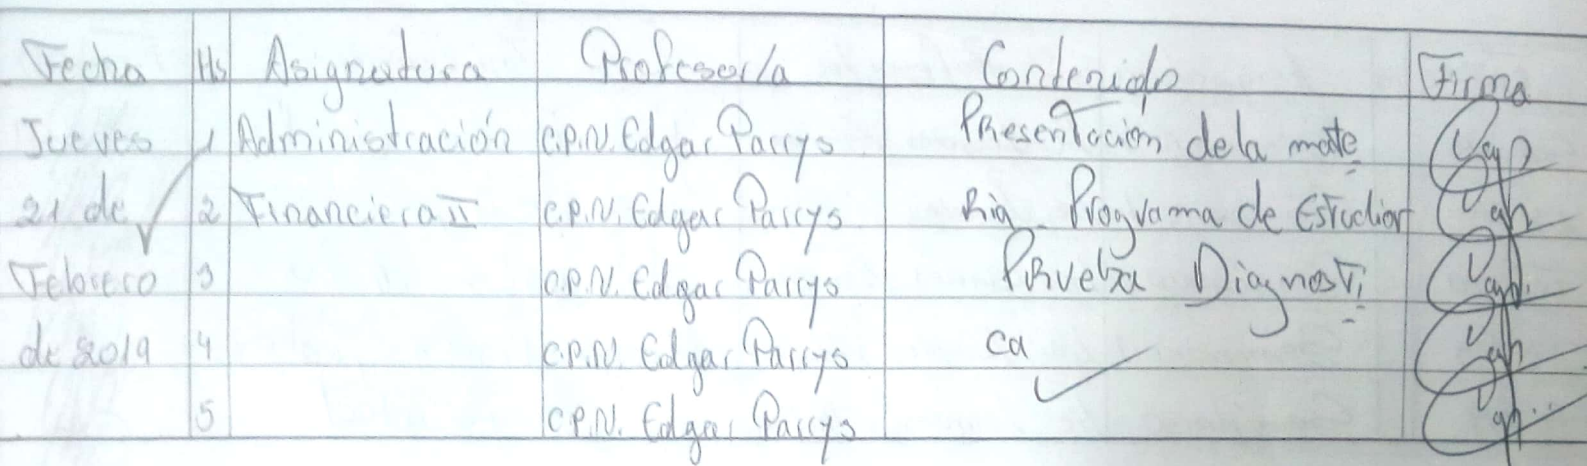 Fecha Hs Asignatura Profesor/a Contenido Firma
Jueves 1 Administración C.P.N. Edgar Parrys Presentación de la mate
21 de 2 Financiera II C.P.N. Edgar Parrys Ria Programa de Estudios
Febrero 3 C.P.N. Edgar Parrys Prueba Diagnosti
de 2019 4 C.P.N. Edgar Parrys ca
5 C.P.N. Edgar Parrys